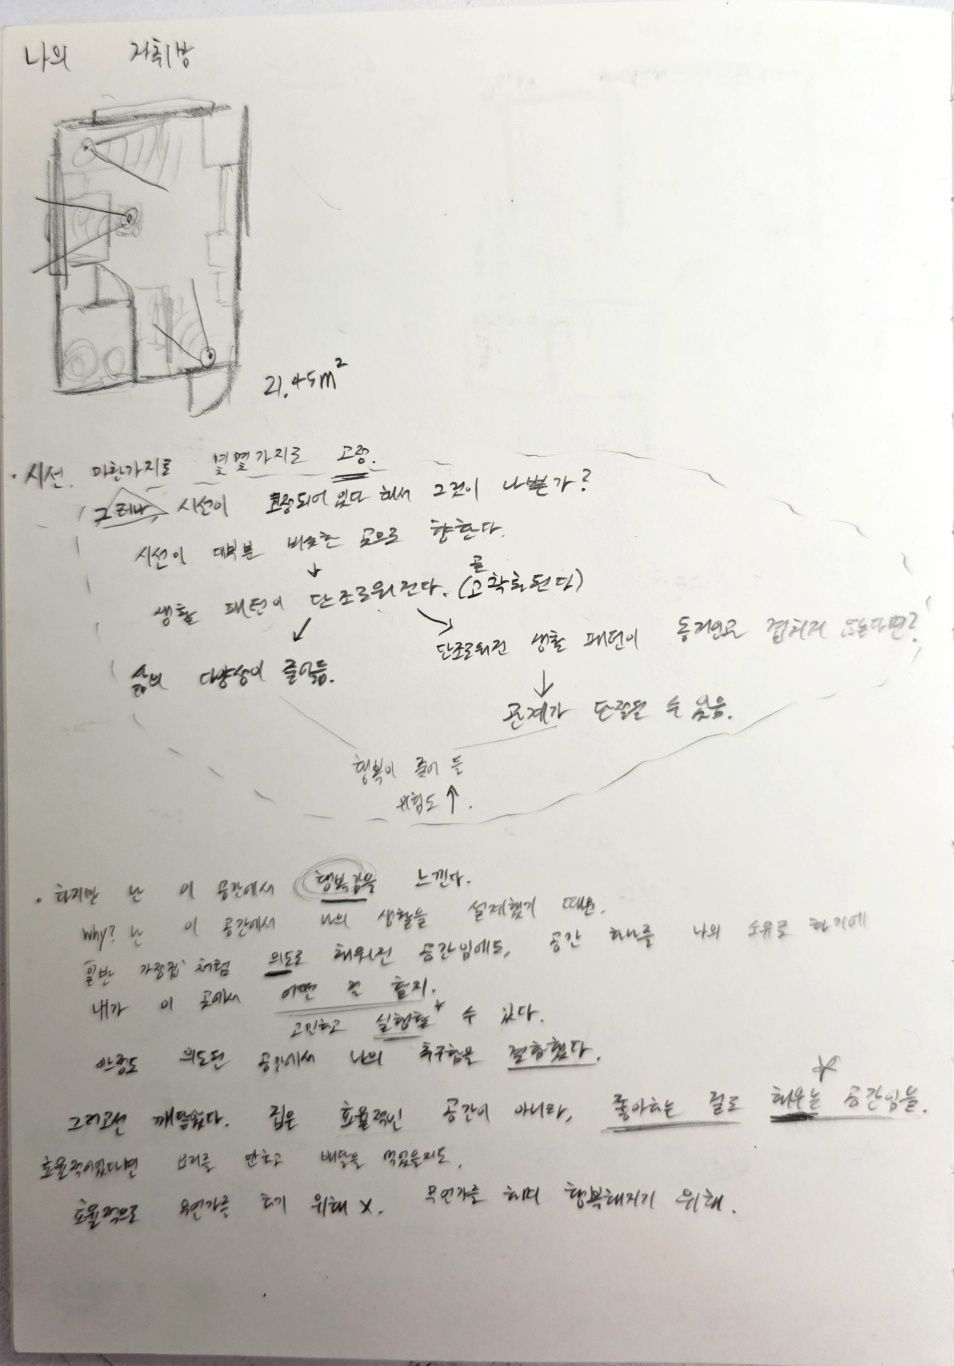 나의 자취방
21.45m²
· 시선. 마찬가지로 몇몇가지로 고정.
그러나 시선이 고정되어 있다 해서 그것이 나쁜가?
시선이 대부분 비슷한 곳으로 향한다.
↓
생활 패턴이 단조로워진다. (고착화된다)
삶의 다양성이 줄어듦.
단조로워진 생활 패턴이 동거인과 겹치지 않는다면?
↓
관계가 단절될 수 있음.
행복이 줄어 들
위험도 ↑.
· 하지만 난 이 공간에서 행복함을 느낀다.
why? 난 이 공간에서 나의 생활을 설계했기 때문.
일반 가정집처럼 의도로 채워진 공간임에도, 공간 하나를 나의 소유로 하기에
내가 이 곳에서 어떤 걸 할지.
고민하고 실험할* 수 있다.
의도된 공간에서 나의 추구함을 결합했다.
그리고선 깨달았다. 집은 효율적인 공간이 아니라, 좋아하는 걸로 채우는 공간임을.
효율적이었다면 요리를 안하고 배달을 먹었을지도.
효율적으로 무언가를 하기 위해 x. 무언가를 하며 행복해지기 위해.